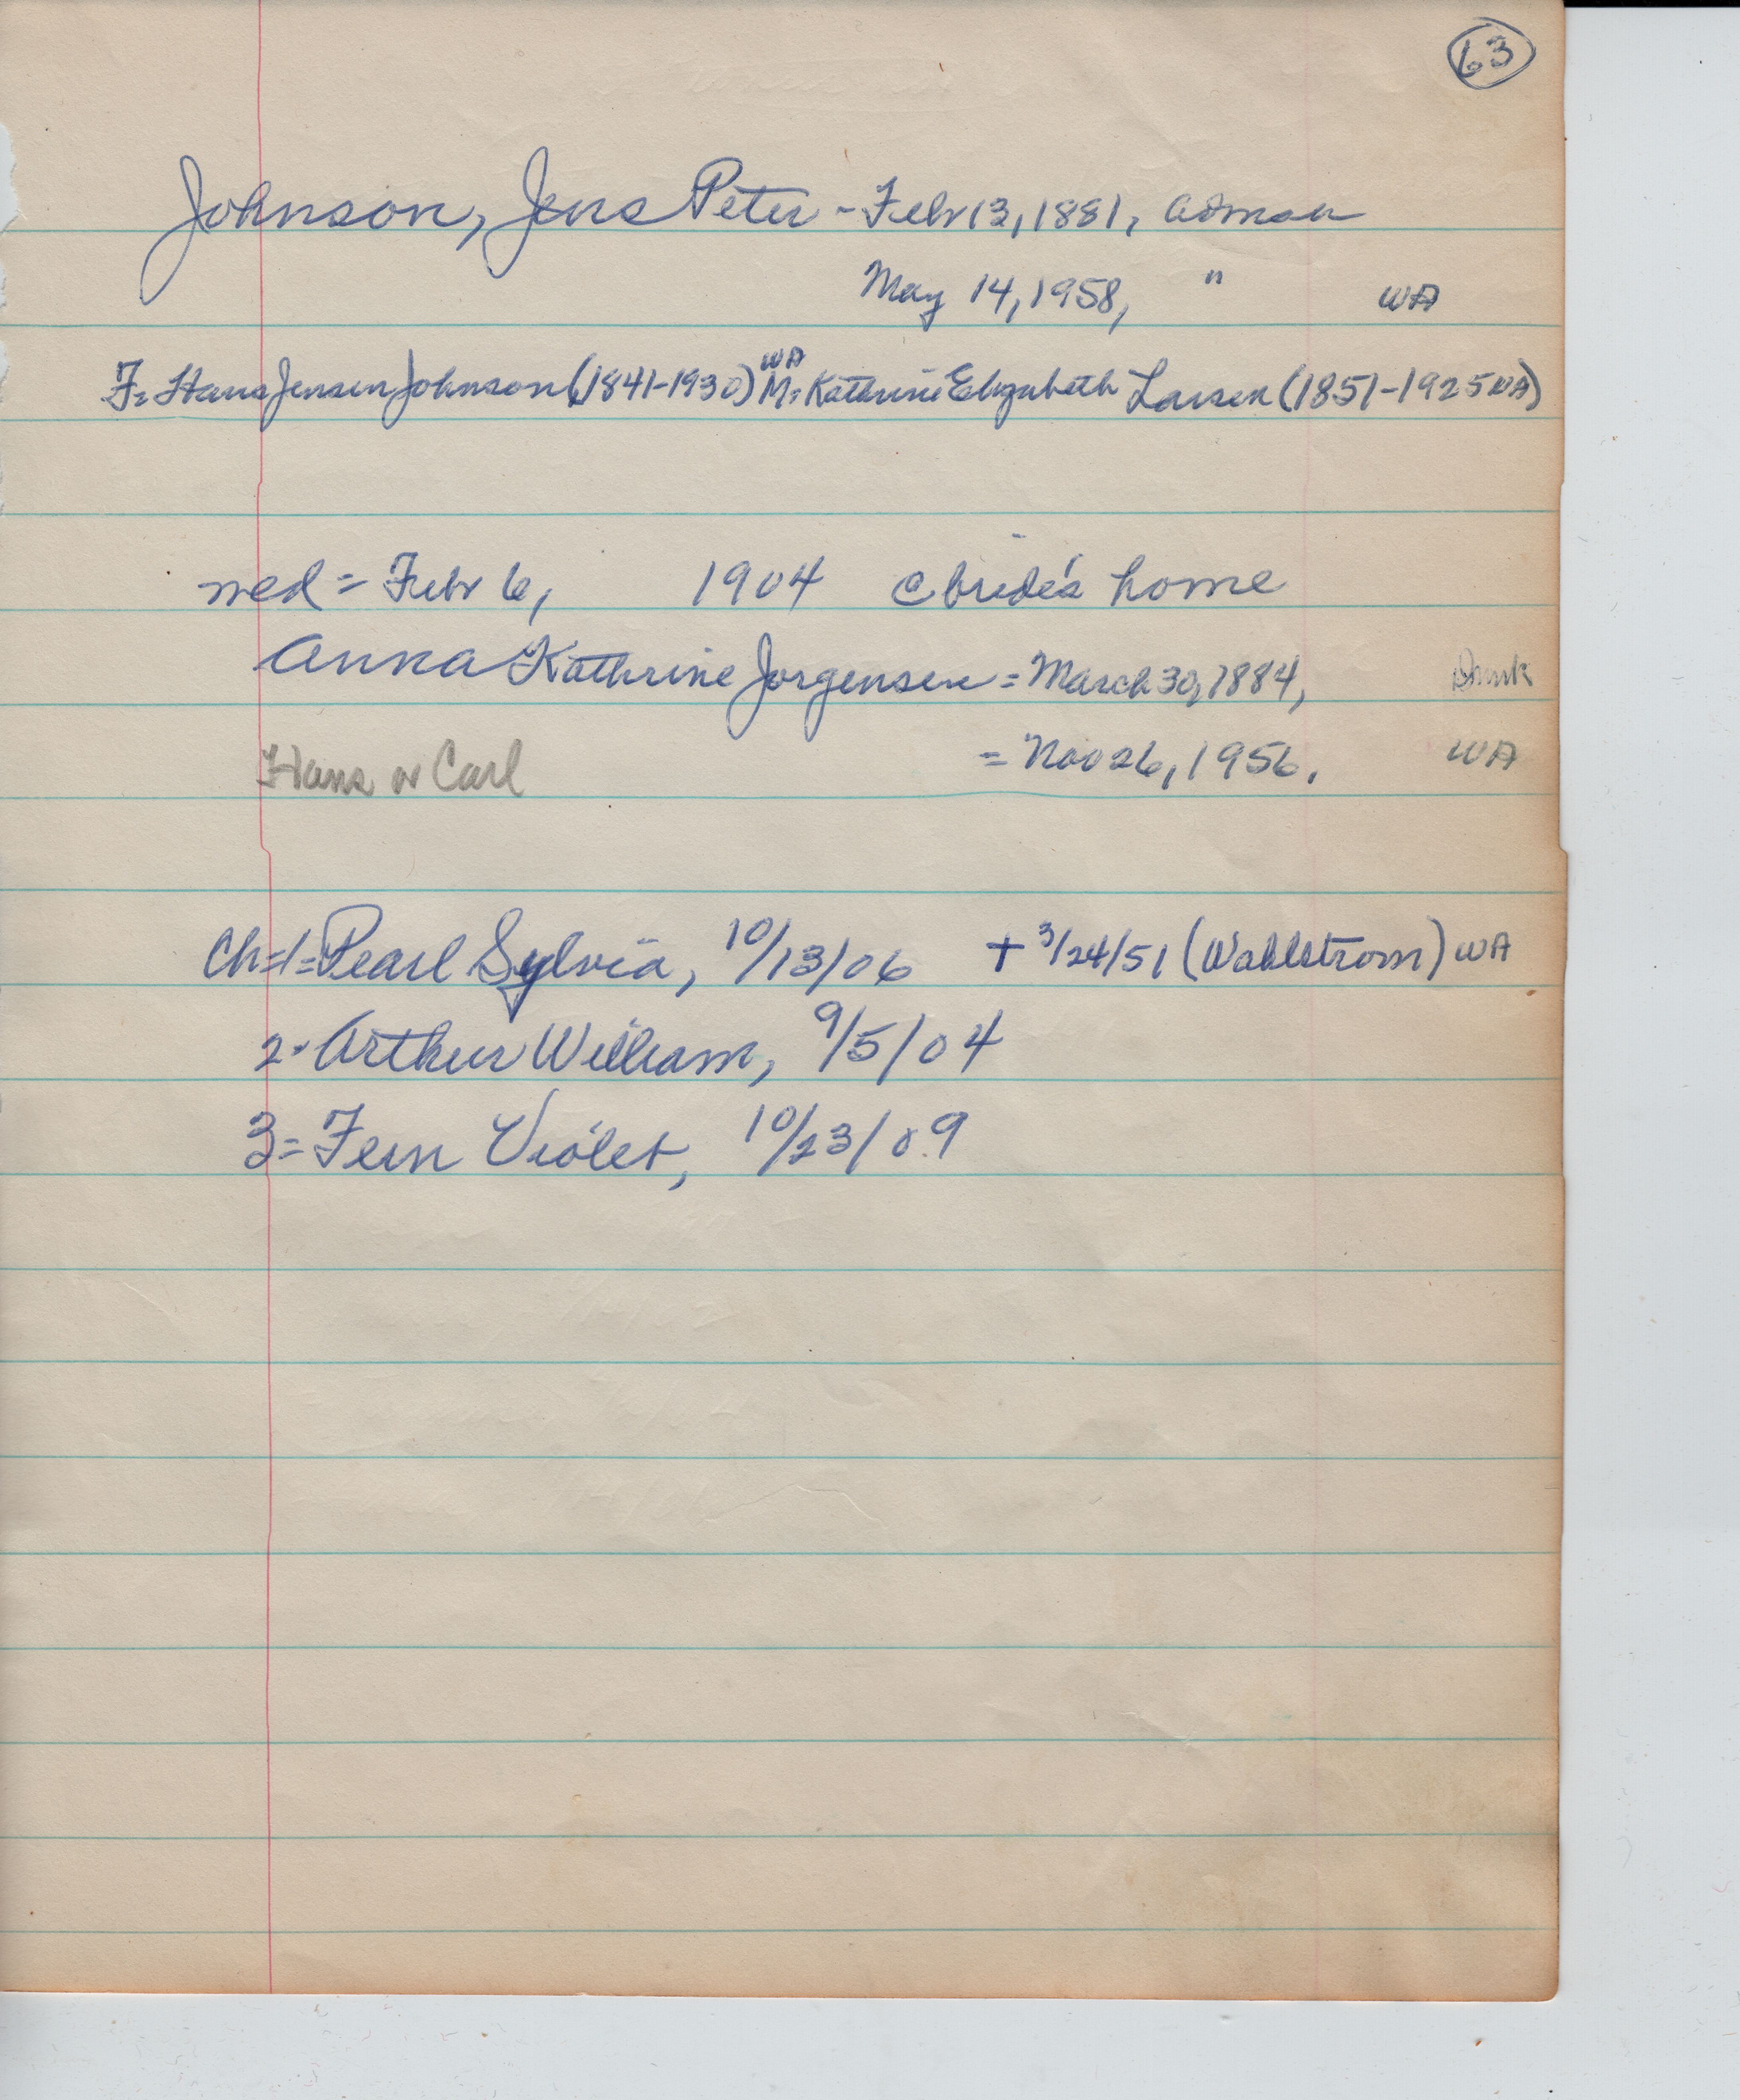 63
Johnson, Jens Peter - Febr 13, 1881, Osman
May 14, 1958, " WA
WA
F= Hans Jensen Johnson (1841-1930) M= Kathrine Elizabeth Larsen (1851-1925 WA)
wed = Febr 6, 1904 @ bride's home
Anna Kathrine Jorgensen = March 30, 1884,
Hans or Carl = Nov 26, 1956, WA
Ch=1= Pearl Sylvia, 10/13/06 + 3/24/51 (Wahlstrom) WA
2. Arthur William, 9/5/04
3= Fern Violet, 10/23/09